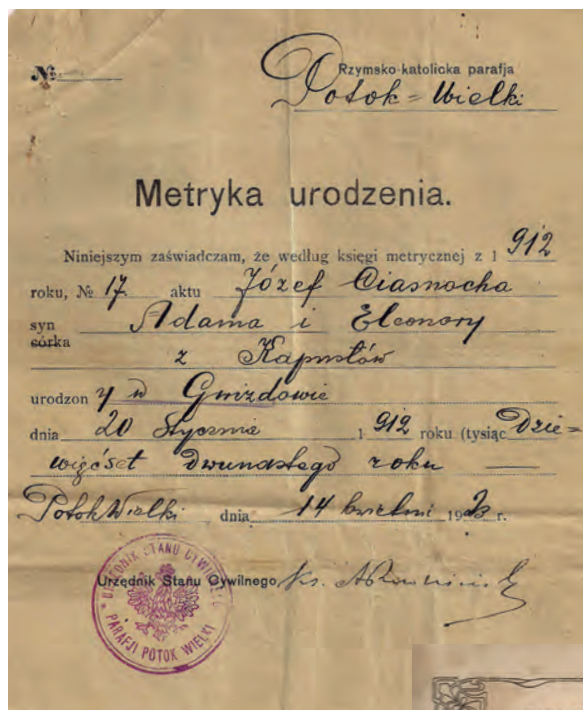 №
Rzymsko-katolicka parafja
Potok=Wielki
Metryka urodzenia.
Niniejszym zaświadczam, że według księgi metrycznej z 1 912
roku, № 17. aktu Józef Ciasnocha
syn Adama i Eleonory
córka
z Kapustów
urodzon y w Gwizdowie
dnia 20 Stycznia 1 912 roku (tysiąc Dzie=
więćset dwunastego roku —
Potok Wielki, dnia 14 kwietni 19 r.
Urzędnik Stanu Cywilnego, Ks.
* URZĘDNIK STANU CYWILNEGO * PARAFJI POTOK WIELKI